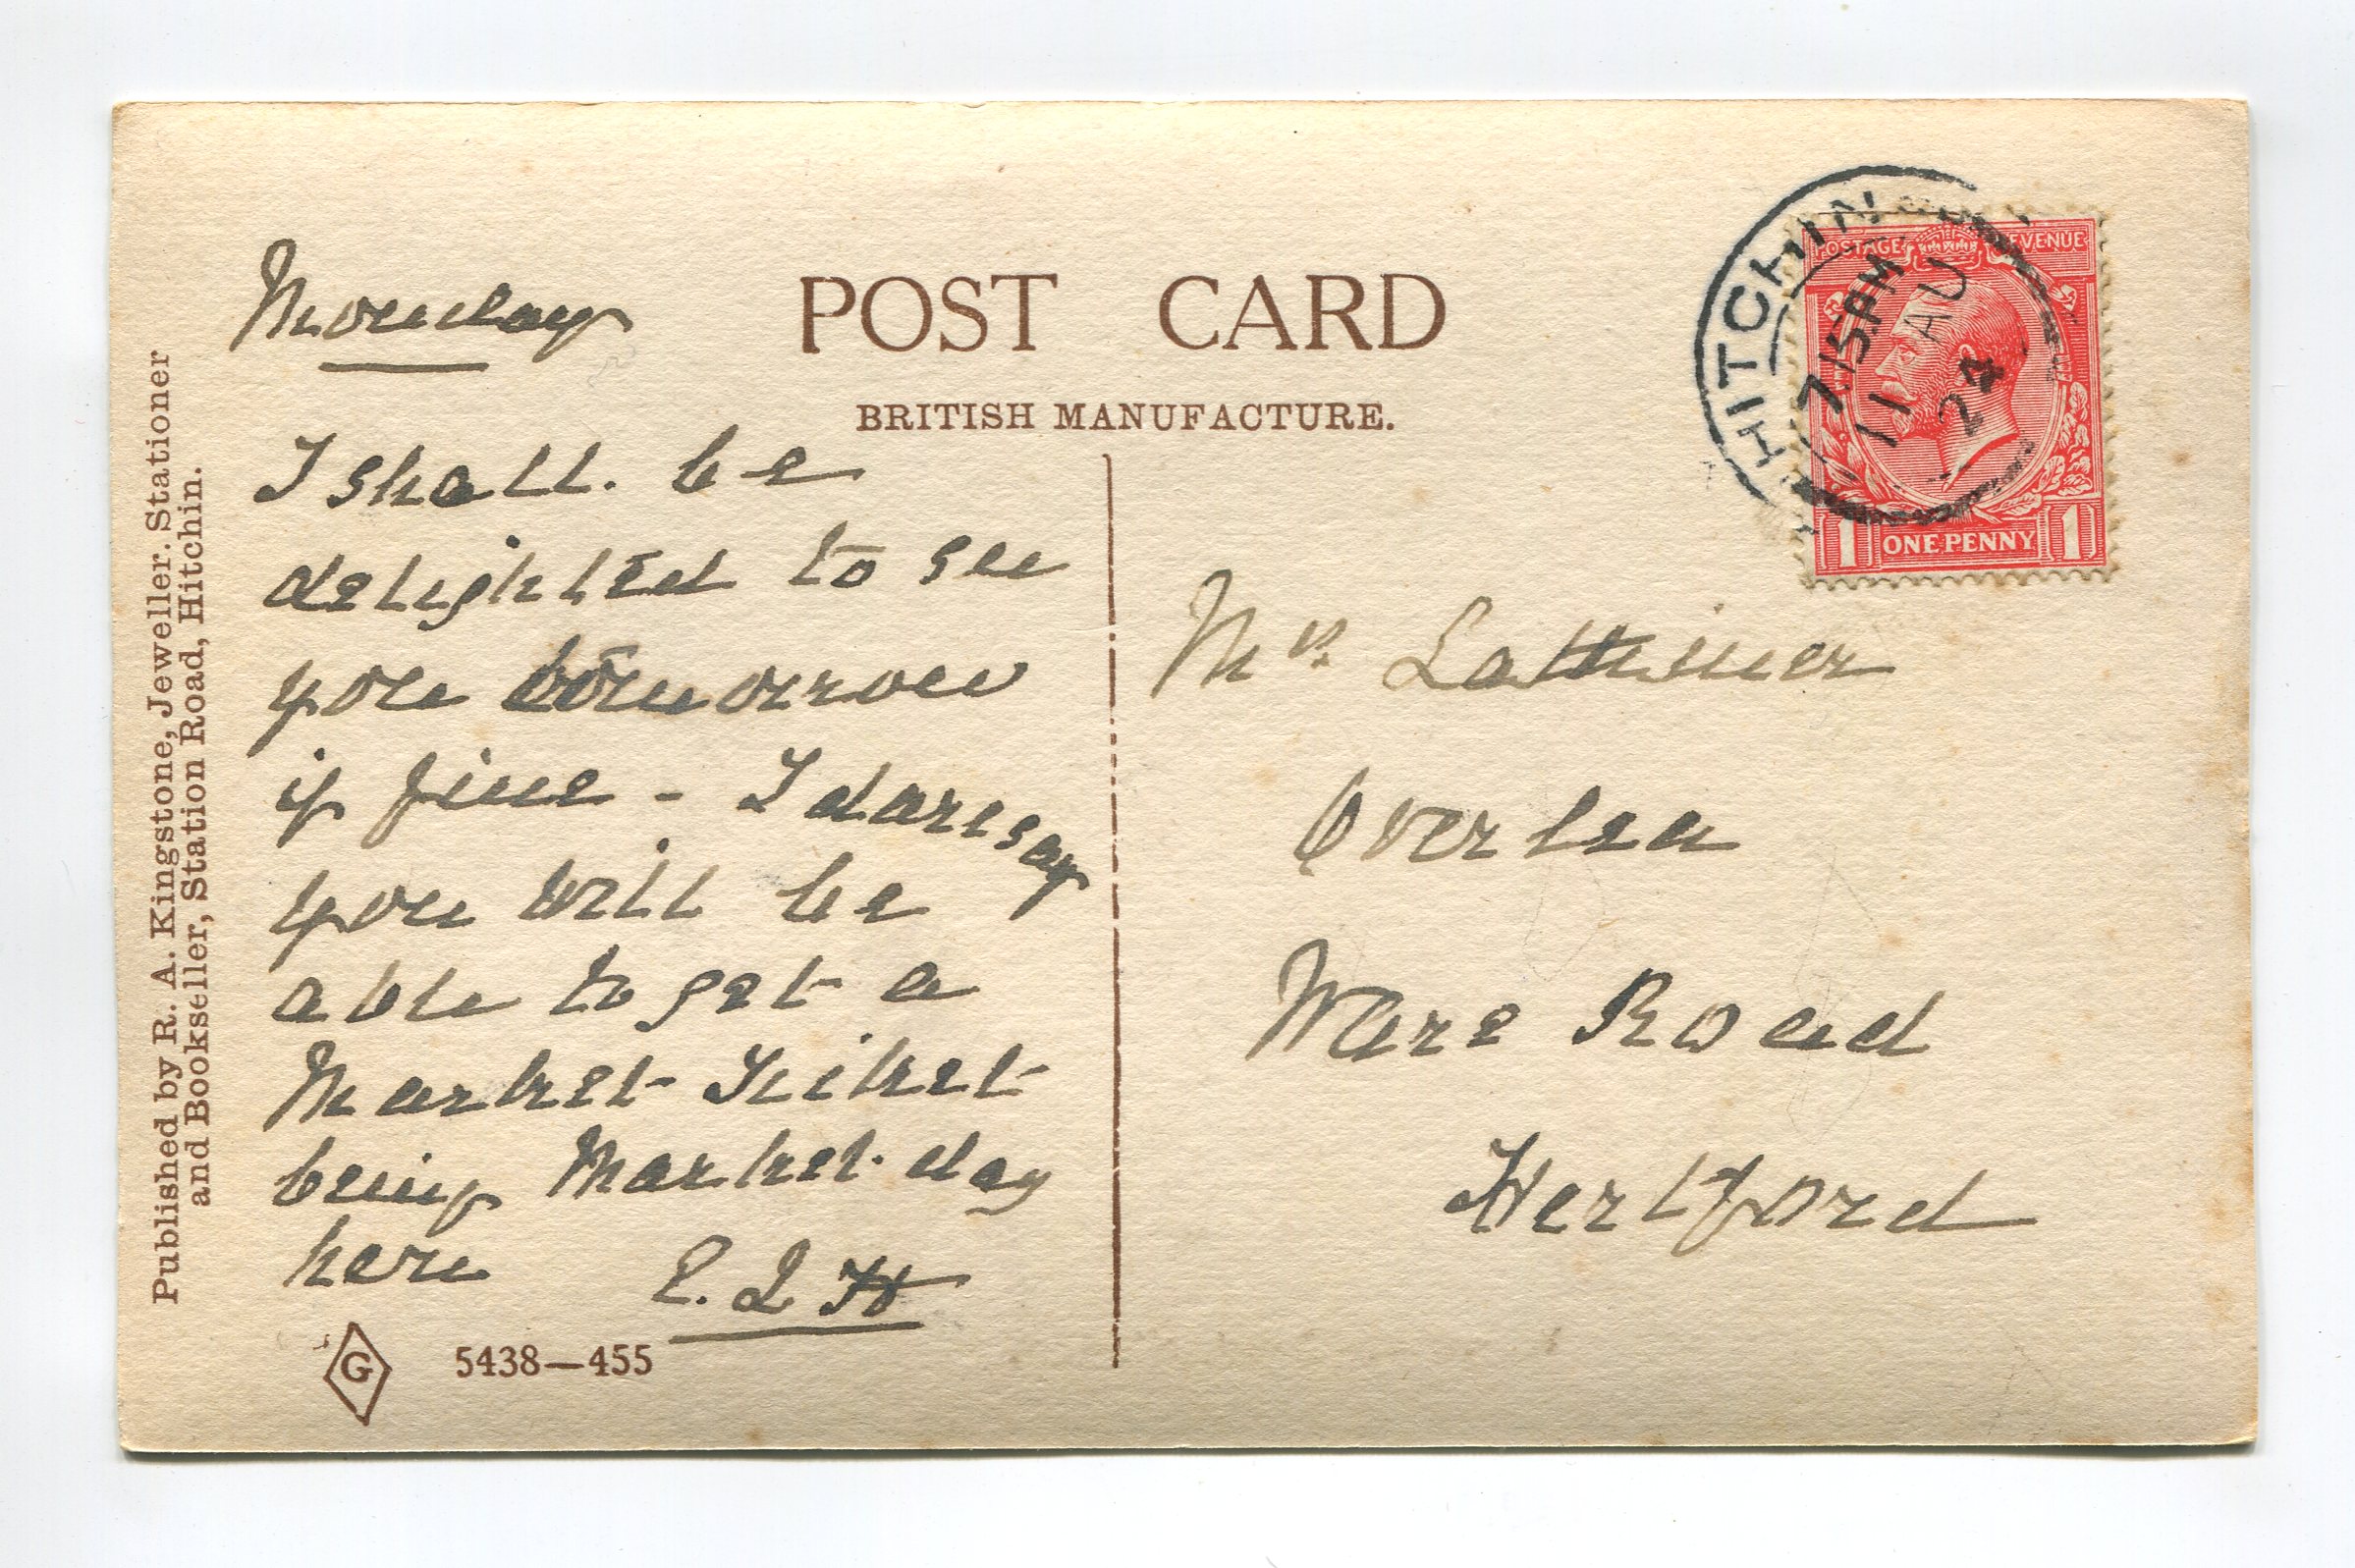 POST CARD
BRITISH MANUFACTURE.
Published by R. A. Kingstone, Jeweller. Stationer
and Bookseller, Station Road, Hitchin.
Monday
I shall. be
delighted to see
you tomorrow
if fine - I daresay
you will be
able to get a
Market Ticket
being Market day
here
E. L H
G
5438—455
HITCHIN
7.15AM
11 AU
24
POSTAGE REVENUE
1 ONE PENNY 1
Mrs. Lattimer
Overlea
Ware Road
Hertford